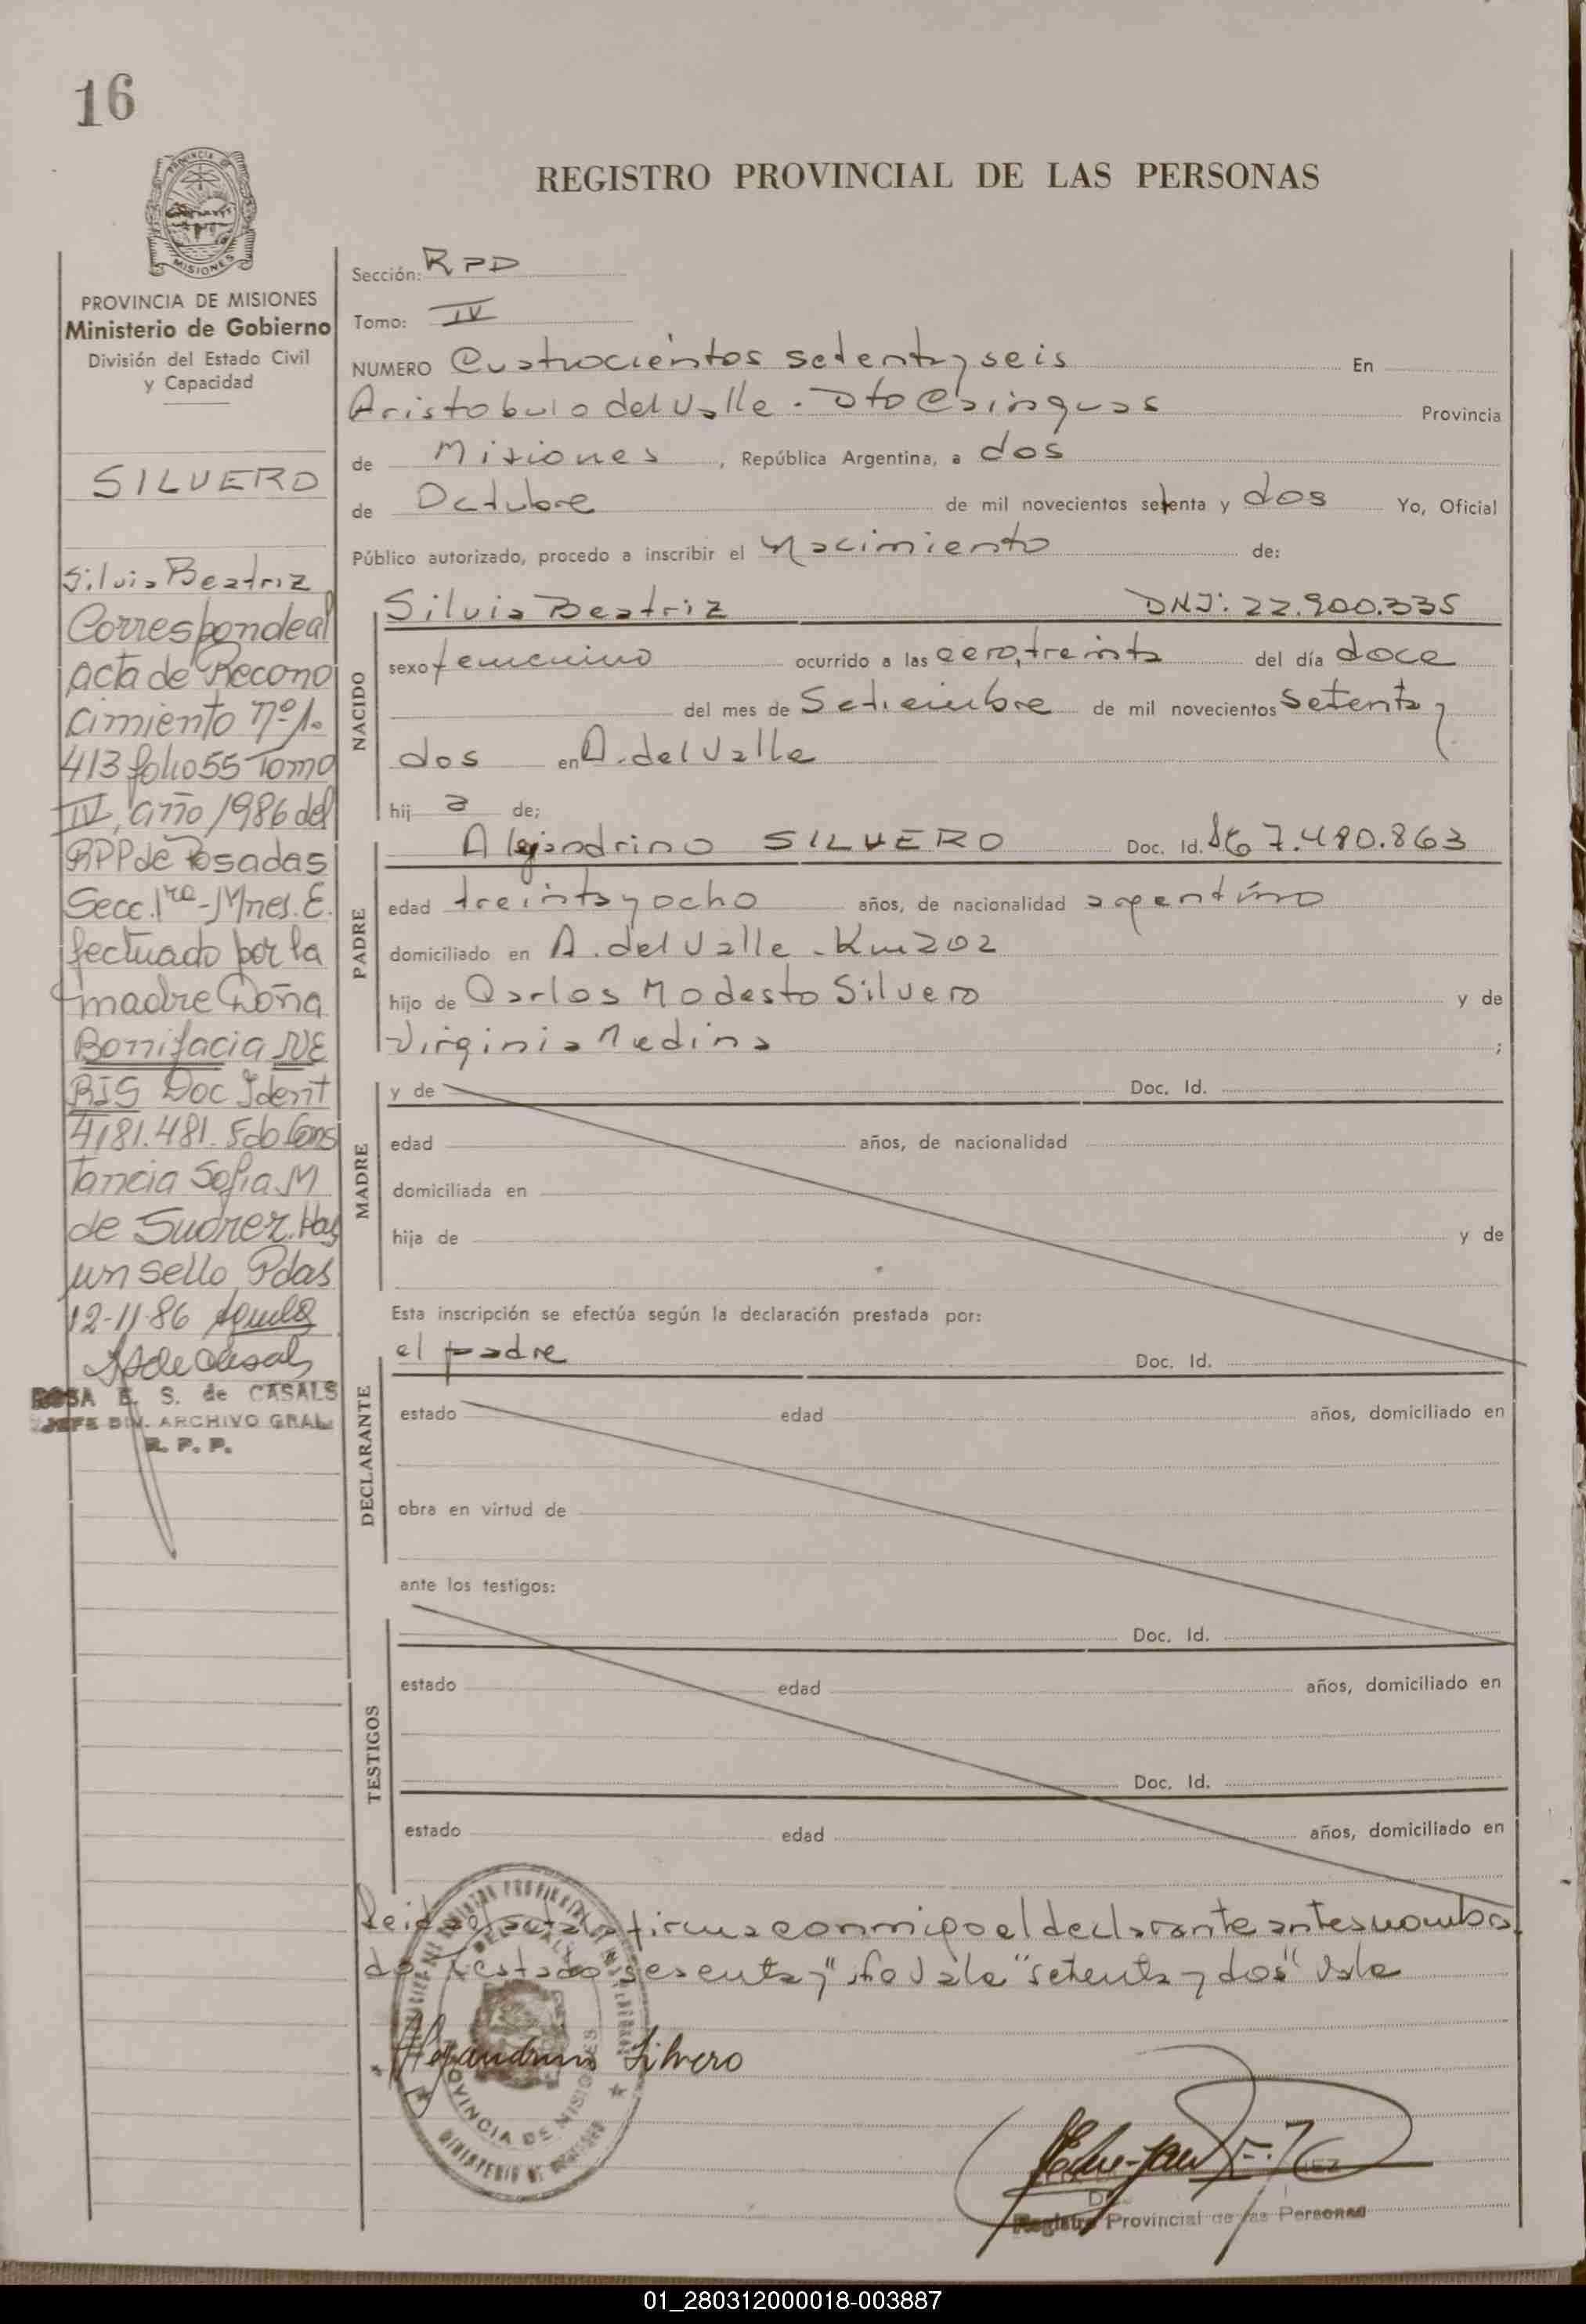 16
REGISTRO PROVINCIAL DE LAS PERSONAS
MISIONES
PROVINCIA DE MISIONES
Ministerio de Gobierno
División del Estado Civil
y Capacidad
SILVERO
Silvia Beatriz
Corresponde al
acta de Recono
cimiento nº 1.
413 folio 55 Tomo
IV, año 1986 del
RPP de Posadas
Secc. 1ra - Mnes. E.
fectuado por la
madre Doña
Bonifacia NE
RIS Doc Ident
4181.481. Fdo Cons
tancia Sofia M
de Suárez. Hay
un sello Pdas
12-11-86
ROSA E. S. de CASALS
JEFE DIV. ARCHIVO GRAL.
R. P. P.
Sección: RPD
Tomo: IV
NUMERO Cuatrocientos setenta y seis En
Aristobulo del Valle - Dto Cainguas Provincia
de Misiones, República Argentina, a dos
de Octubre de mil novecientos setenta y dos Yo, Oficial
Público autorizado, procedo a inscribir el Nacimiento de:
NACIDO
Silvia Beatriz DNI: 22.900.335
sexo femenino ocurrido a las cero, treinta del día doce
del mes de Setiembre de mil novecientos setenta y
dos en A. del Valle
hij a de;
PADRE
Alejandrino SILVERO Doc. Id. 7.480.863
edad treinta y ocho años, de nacionalidad argentino
domiciliado en A. del Valle - Km 202
hijo de Carlos Modesto Silvero y de
Virginia Medina ;
MADRE
y de Doc. Id.
edad años, de nacionalidad
domiciliada en
hija de y de
Esta inscripción se efectúa según la declaración prestada por:
DECLARANTE
el padre Doc. Id.
estado edad años, domiciliado en
obra en virtud de
ante los testigos:
TESTIGOS
Doc. Id.
estado edad años, domiciliado en
Doc. Id.
estado edad años, domiciliado en
Leida el acta la firma conmigo el declarante antes nombra
do. Testado "sesenta y" No Vale "setenta y dos" Vale
Alejandrino Silvero
PROVINCIA DE MISIONES
Registro Provincial de las Personas
01_280312000018-003887